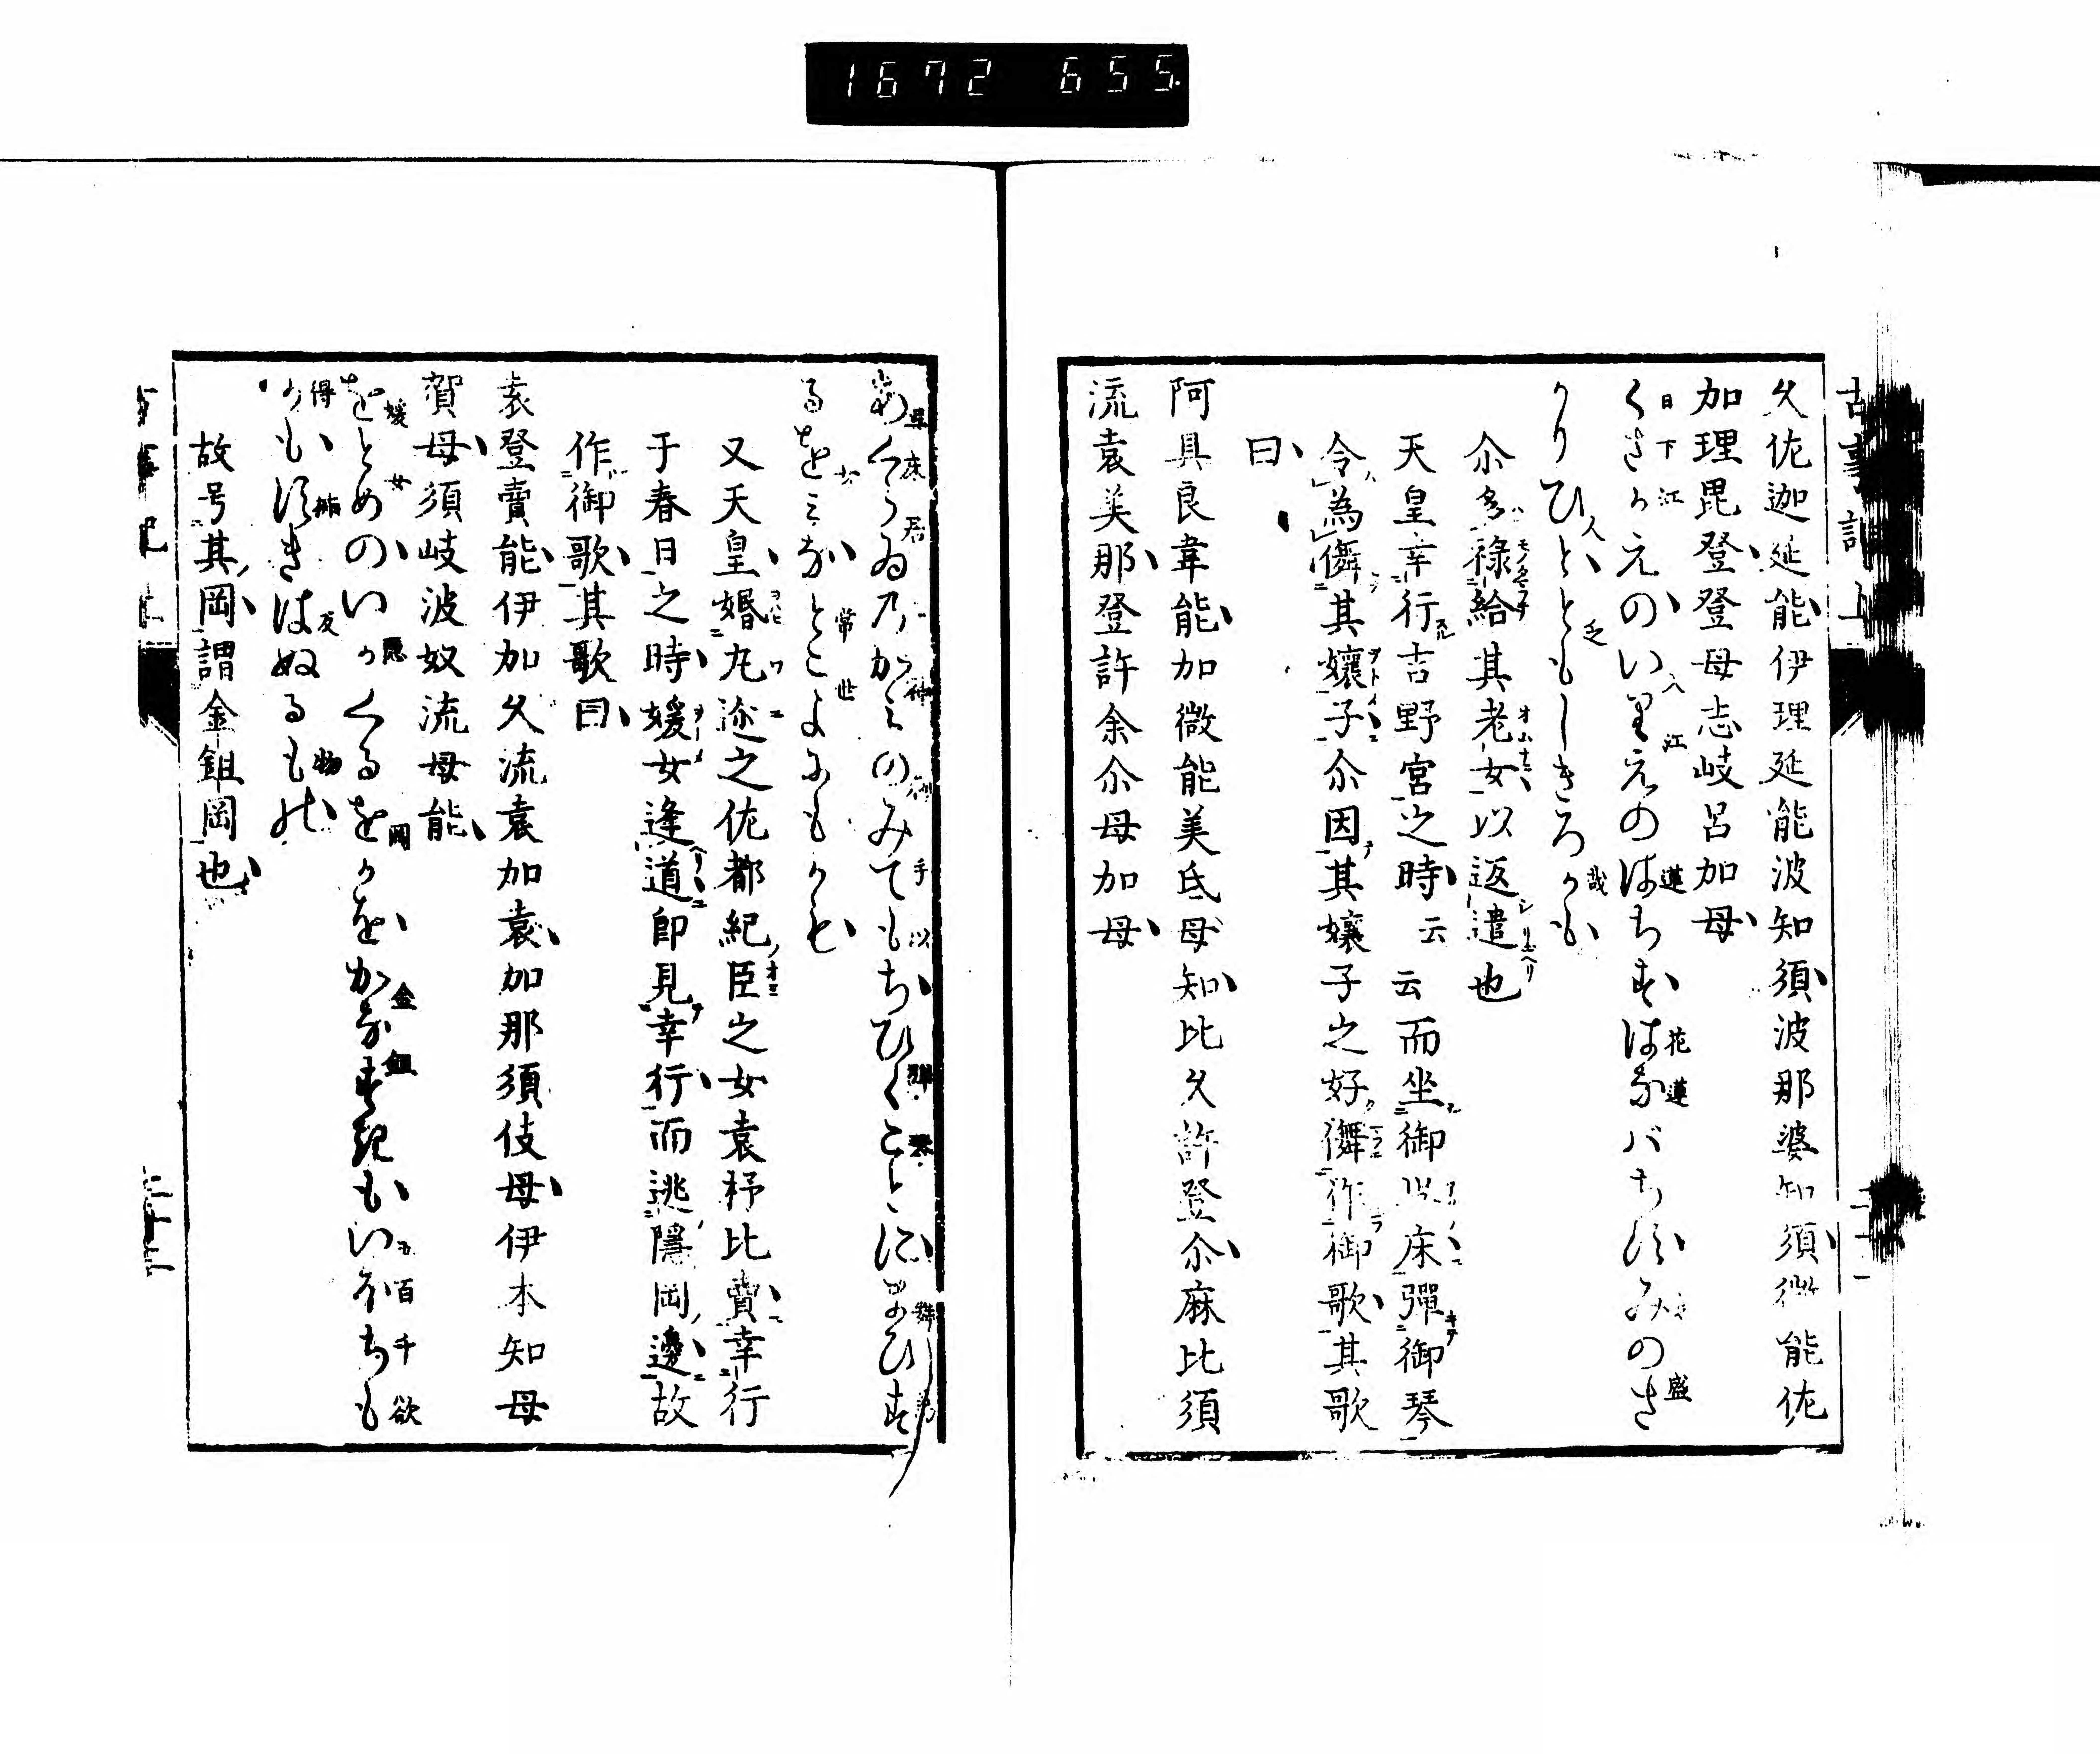 1672 655.
久佐迦延能伊理延能波知須波那婆知須微能佐
加理毘登登母志岐呂加母
くさかえのいりえのはちすはなバちすみのさ
かりひとともしきろかも
尒多禄給其老女以返遣也
天皇幸行吉野宮之時云云而坐御以床彈御琴
令為儛其孃子尒因其孃子之好儛作御歌其歌
曰
阿具良韋能加微能美氐母知比久許登尒麻比須
流袁美那登許余尒母加母
あくらゐのかみのみてもちひくことにまひす
るをみなとこよにもかも
又天皇婚丸邇之佐都紀臣之女袁杼比賣幸行
于春日之時媛女逢道即見幸行而逃隱岡邊故
作御歌其歌曰
袁登賣能伊加久流袁加袁加那須伎母伊本知母
賀母須岐波奴流母能
をとめのいかくるをかをかなすきもいほちも
かもすきはぬるもの
故号其岡謂金鉏岡也